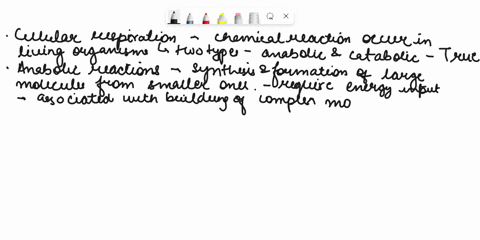 · Cellular respiration → chemical reaction occur in
living organisms ↳ two type - anabolic & catabolic - True
· Anabolic reactions → synthesis & formation of large
molecules from smaller ones. - require energy input
→ associated with building of complex mo